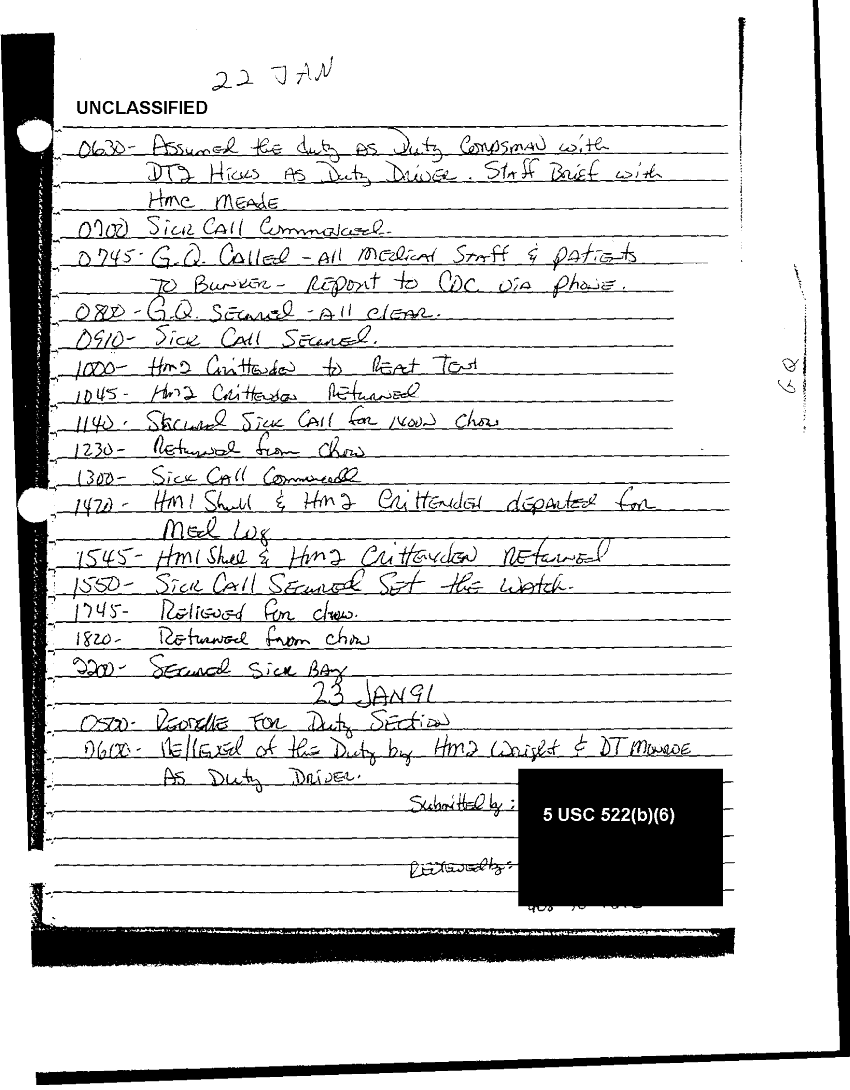 22 JAN
UNCLASSIFIED
0630- Assumed the duty as Duty Corpsman with
DT2 Hicks as Duty Driver. Staff Brief with
HMC MEADE
0700 Sick Call Commenced.
0745- G.Q. Called - All Medical Staff & patients
to Bunker - Report to CDC via phone.
0800 - G.Q. Secured - All clear.
0910- Sick Call Secured.
1000- HM2 Crittenden to Tent
1045- HM2 Crittenden Returned
1140- Secured Sick Call for Noon Chow
1230- Returned from Chow
1300- Sick Call Commenced
1420- HM1 Shull & HM2 Crittenden departed for
Med Log
1545- HM1 Shull & HM2 Crittenden Returned
1550- Sick Call Secured Set the Watch.
1745- Relieved for chow.
1820- Returned from chow
2200- Secured Sick Bay
23 JAN 91
0500- Reveille For Duty Section
0600- Relieved of the Duty by HM2 Wright & DT Monroe
As Duty Driver.
Submitted by:
5 USC 522(b)(6)
Reviewed by:
GQ